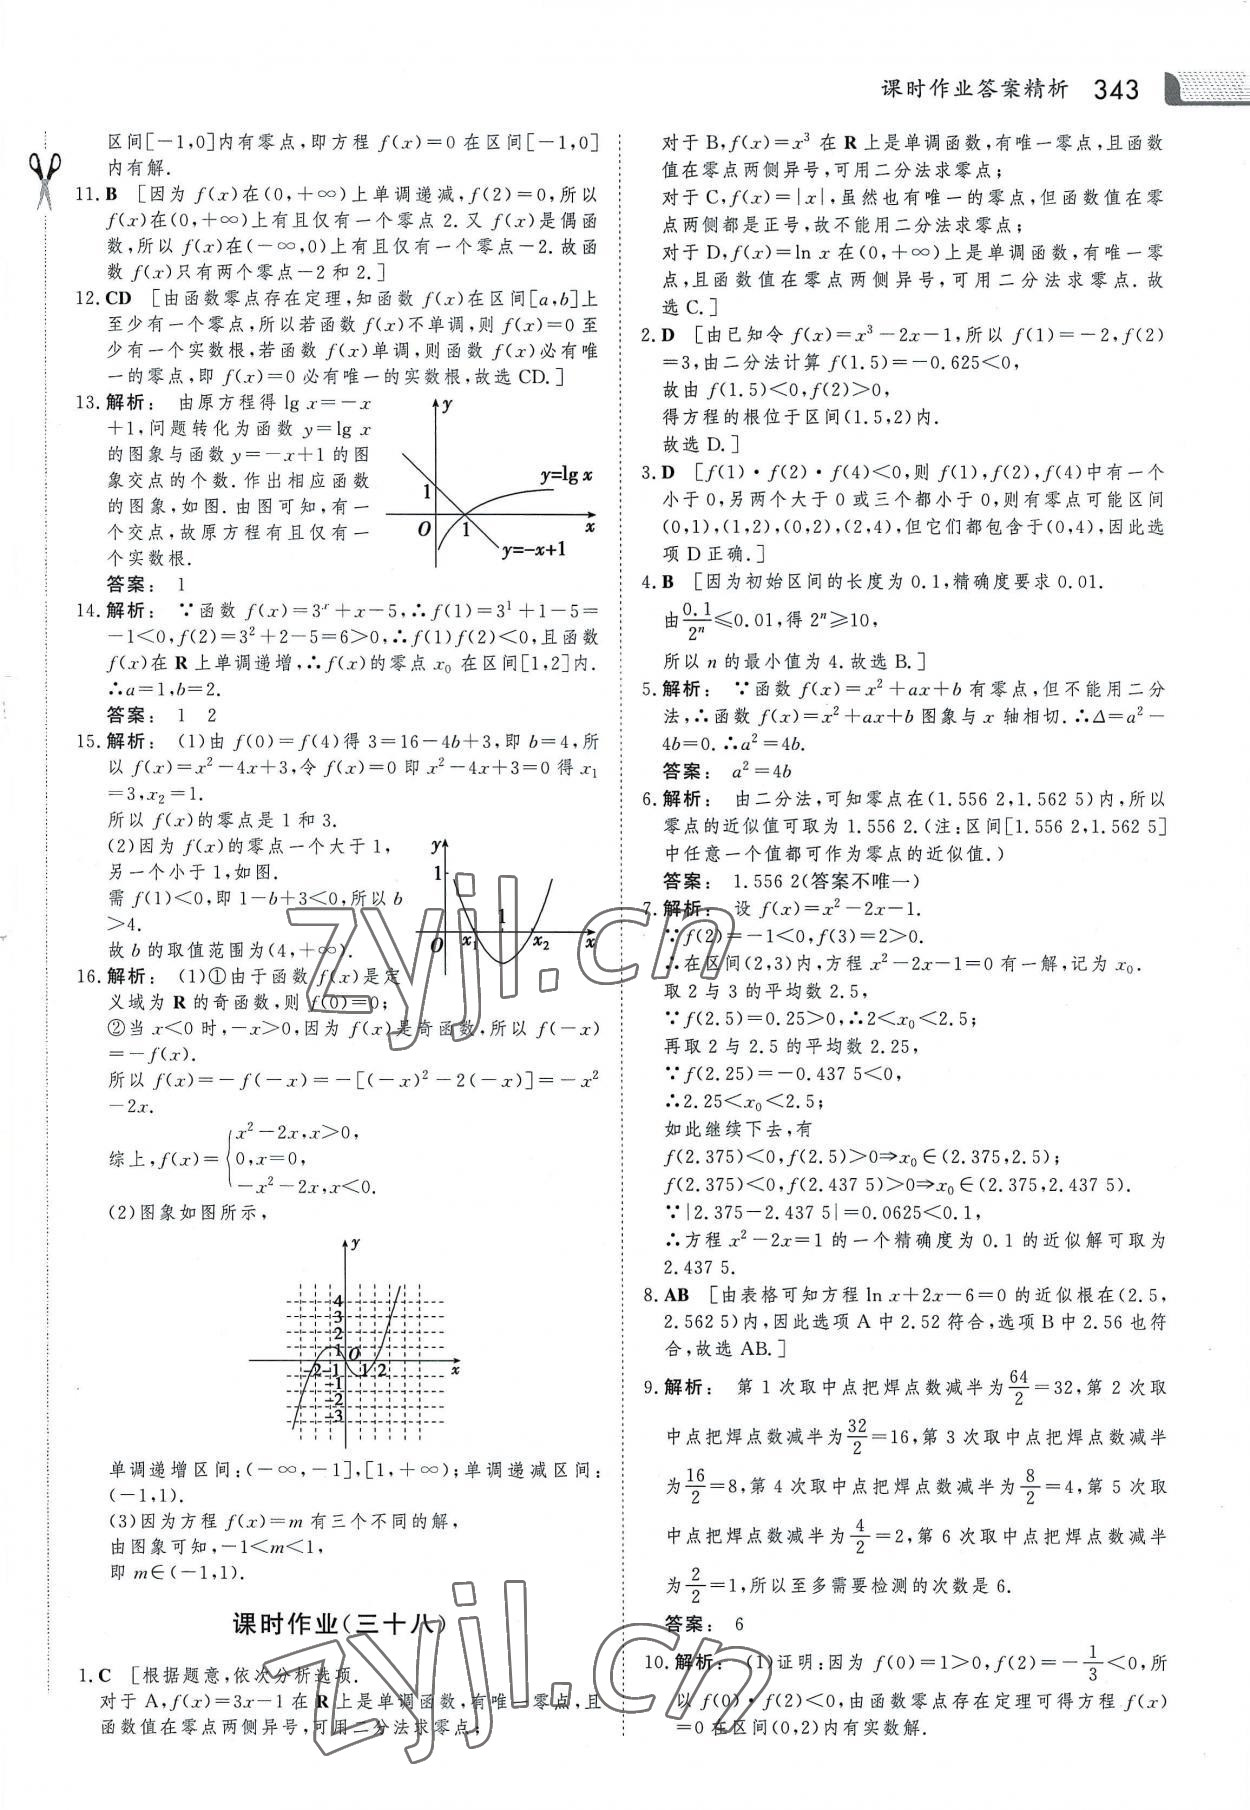 课时作业答案精析 343
区间[-1,0]内有零点,即方程 f(x)=0 在区间[-1,0]
内有解.
11. B [因为 f(x)在(0,+∞)上单调递减,f(2)=0,所以
f(x)在(0,+∞)上有且仅有一个零点 2. 又 f(x)是偶函
数,所以 f(x)在(-∞,0)上有且仅有一个零点-2. 故函
数 f(x)只有两个零点-2 和 2.]
12. CD [由函数零点存在定理,知函数 f(x)在区间[a,b]上
至少有一个零点,所以若函数 f(x)不单调,则 f(x)=0 至
少有一个实数根,若函数 f(x)单调,则函数 f(x)必有唯
一的零点,即 f(x)=0 必有唯一的实数根,故选 CD.]
13. 解析: 由原方程得 lg x=-x
+1,问题转化为函数 y=lg x
的图象与函数 y=-x+1 的图
象交点的个数. 作出相应函数
的图象,如图. 由图可知,有一
个交点,故原方程有且仅有一
个实数根.
y
y=lg x
1
O
1
x
y=-x+1
答案: 1
14. 解析: ∵函数 f(x)=3ˣ+x-5,∴f(1)=3¹+1-5=
-1<0,f(2)=3²+2-5=6>0,∴f(1)f(2)<0,且函数
f(x)在 R 上单调递增,∴f(x)的零点 x₀ 在区间[1,2]内.
∴a=1,b=2.
答案: 1 2
15. 解析: (1)由 f(0)=f(4)得 3=16-4b+3,即 b=4,所
以 f(x)=x²-4x+3,令 f(x)=0 即 x²-4x+3=0 得 x₁
=3,x₂=1.
所以 f(x)的零点是 1 和 3.
(2)因为 f(x)的零点一个大于 1,
另一个小于 1,如图.
需 f(1)<0,即 1-b+3<0,所以 b
>4.
故 b 的取值范围为(4,+∞).
y
1
1
O
x₁
x₂
x
16. 解析: (1)①由于函数 f(x)是定
义域为 R 的奇函数,则 f(0)=0;
②当 x<0 时,-x>0,因为 f(x)是奇函数,所以 f(-x)
=-f(x).
所以 f(x)=-f(-x)=-[(-x)²-2(-x)]=-x²
-2x.
x²-2x,x>0,
综上,f(x)={0,x=0,
-x²-2x,x<0.
(2)图象如图所示,
y
4
3
2
1
O
-2-1 1 2 x
-1
-2
-3
单调递增区间:(-∞,-1],[1,+∞);单调递减区间:
(-1,1).
(3)因为方程 f(x)=m 有三个不同的解,
由图象可知,-1<m<1,
即 m∈(-1,1).
课时作业(三十八)
1. C [根据题意,依次分析选项.
对于 A,f(x)=3x-1 在 R 上是单调函数,有唯一零点,且
函数值在零点两侧异号,可用二分法求零点;
对于 B,f(x)=x³ 在 R 上是单调函数,有唯一零点,且函数
值在零点两侧异号,可用二分法求零点;
对于 C,f(x)=|x|,虽然也有唯一的零点,但函数值在零
点两侧都是正号,故不能用二分法求零点;
对于 D,f(x)=ln x 在(0,+∞)上是单调函数,有唯一零
点,且函数值在零点两侧异号,可用二分法求零点. 故
选 C.]
2. D [由已知令 f(x)=x³-2x-1,所以 f(1)=-2,f(2)
=3,由二分法计算 f(1.5)=-0.625<0,
故由 f(1.5)<0,f(2)>0,
得方程的根位于区间(1.5,2)内.
故选 D.]
3. D [f(1)·f(2)·f(4)<0,则 f(1),f(2),f(4)中有一个
小于 0,另两个大于 0 或三个都小于 0,则有零点可能区间
(0,1),(1,2),(0,2),(2,4),但它们都包含于(0,4),因此选
项 D 正确.]
4. B [因为初始区间的长度为 0.1,精确度要求 0.01.
由0.1/2ⁿ≤0.01,得 2ⁿ≥10,
所以 n 的最小值为 4. 故选 B.]
5. 解析: ∵函数 f(x)=x²+ax+b 有零点,但不能用二分
法,∴函数 f(x)=x²+ax+b 图象与 x 轴相切. ∴Δ=a²-
4b=0. ∴a²=4b.
答案: a²=4b
6. 解析: 由二分法,可知零点在(1.556 2,1.562 5)内,所以
零点的近似值可取为 1.556 2. (注:区间[1.556 2,1.562 5]
中任意一个值都可作为零点的近似值.)
答案: 1.556 2(答案不唯一)
7. 解析: 设 f(x)=x²-2x-1.
∵f(2)=-1<0,f(3)=2>0.
∴在区间(2,3)内,方程 x²-2x-1=0 有一解,记为 x₀.
取 2 与 3 的平均数 2.5,
∵f(2.5)=0.25>0,∴2<x₀<2.5;
再取 2 与 2.5 的平均数 2.25,
∵f(2.25)=-0.437 5<0,
∴2.25<x₀<2.5;
如此继续下去,有
f(2.375)<0,f(2.5)>0⇒x₀∈(2.375,2.5);
f(2.375)<0,f(2.437 5)>0⇒x₀∈(2.375,2.437 5).
∵|2.375-2.437 5|=0.0625<0.1,
∴方程 x²-2x=1 的一个精确度为 0.1 的近似解可取为
2.437 5.
8. AB [由表格可知方程 ln x+2x-6=0 的近似根在(2.5,
2.562 5)内,因此选项 A 中 2.52 符合,选项 B 中 2.56 也符
合,故选 AB.]
9. 解析: 第 1 次取中点把焊点数减半为64/2=32,第 2 次取
中点把焊点数减半为32/2=16,第 3 次取中点把焊点数减半
为16/2=8,第 4 次取中点把焊点数减半为8/2=4,第 5 次取
中点把焊点数减半为4/2=2,第 6 次取中点把焊点数减半
为2/2=1,所以至多需要检测的次数是 6.
答案: 6
10. 解析: (1)证明:因为 f(0)=1>0,f(2)=-1/3<0,所
以 f(0)·f(2)<0,由函数零点存在定理可得方程 f(x)
=0 在区间(0,2)内有实数解.
zyjl.cn
zyjl.cn